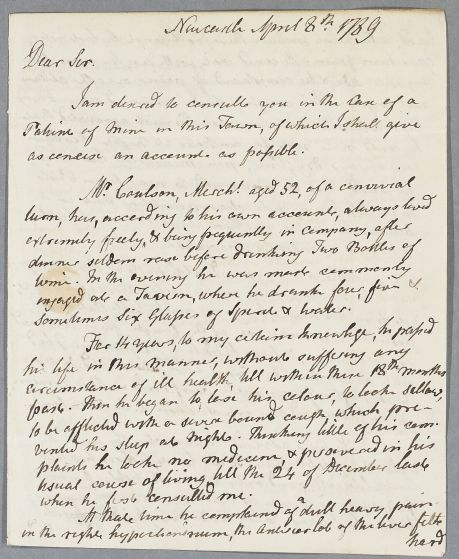 Newcastle April 8th. 1789
Dear Sir.
I am desired to consult you in the Case of a
Patient of mine in this Town, of which I shall give
as concise an account as possible.
Mr. Coulson, Mercht. aged 52, of a convivial
turn, has, according to his own account, always lived
extremely freely, & being frequently in company, after
dinner seldom rose before drinking Two Bottles of
wine. In the evening he was most commonly
engaged at a Tavern, where he drank four, five &
sometimes Six Glasses of Spirit & water.
For 14 years, to my certain knowledge, he passed
his life in this manner, without suffering any
circumstance of ill health, till within these 18th months
past. Then he began to lose his colour, to look sallow,
to be afflicted with a severe bound cough which pre-
vented his sleep at nights. Thinking little of his com-
plaints he took no medicine & persevered in his
usual course of living, till the 24 of December last
when he first consulted me.
At that time he complained of a dull heavy pain
in the right hypochondrium, the Anterior lob of the liver felt
hard